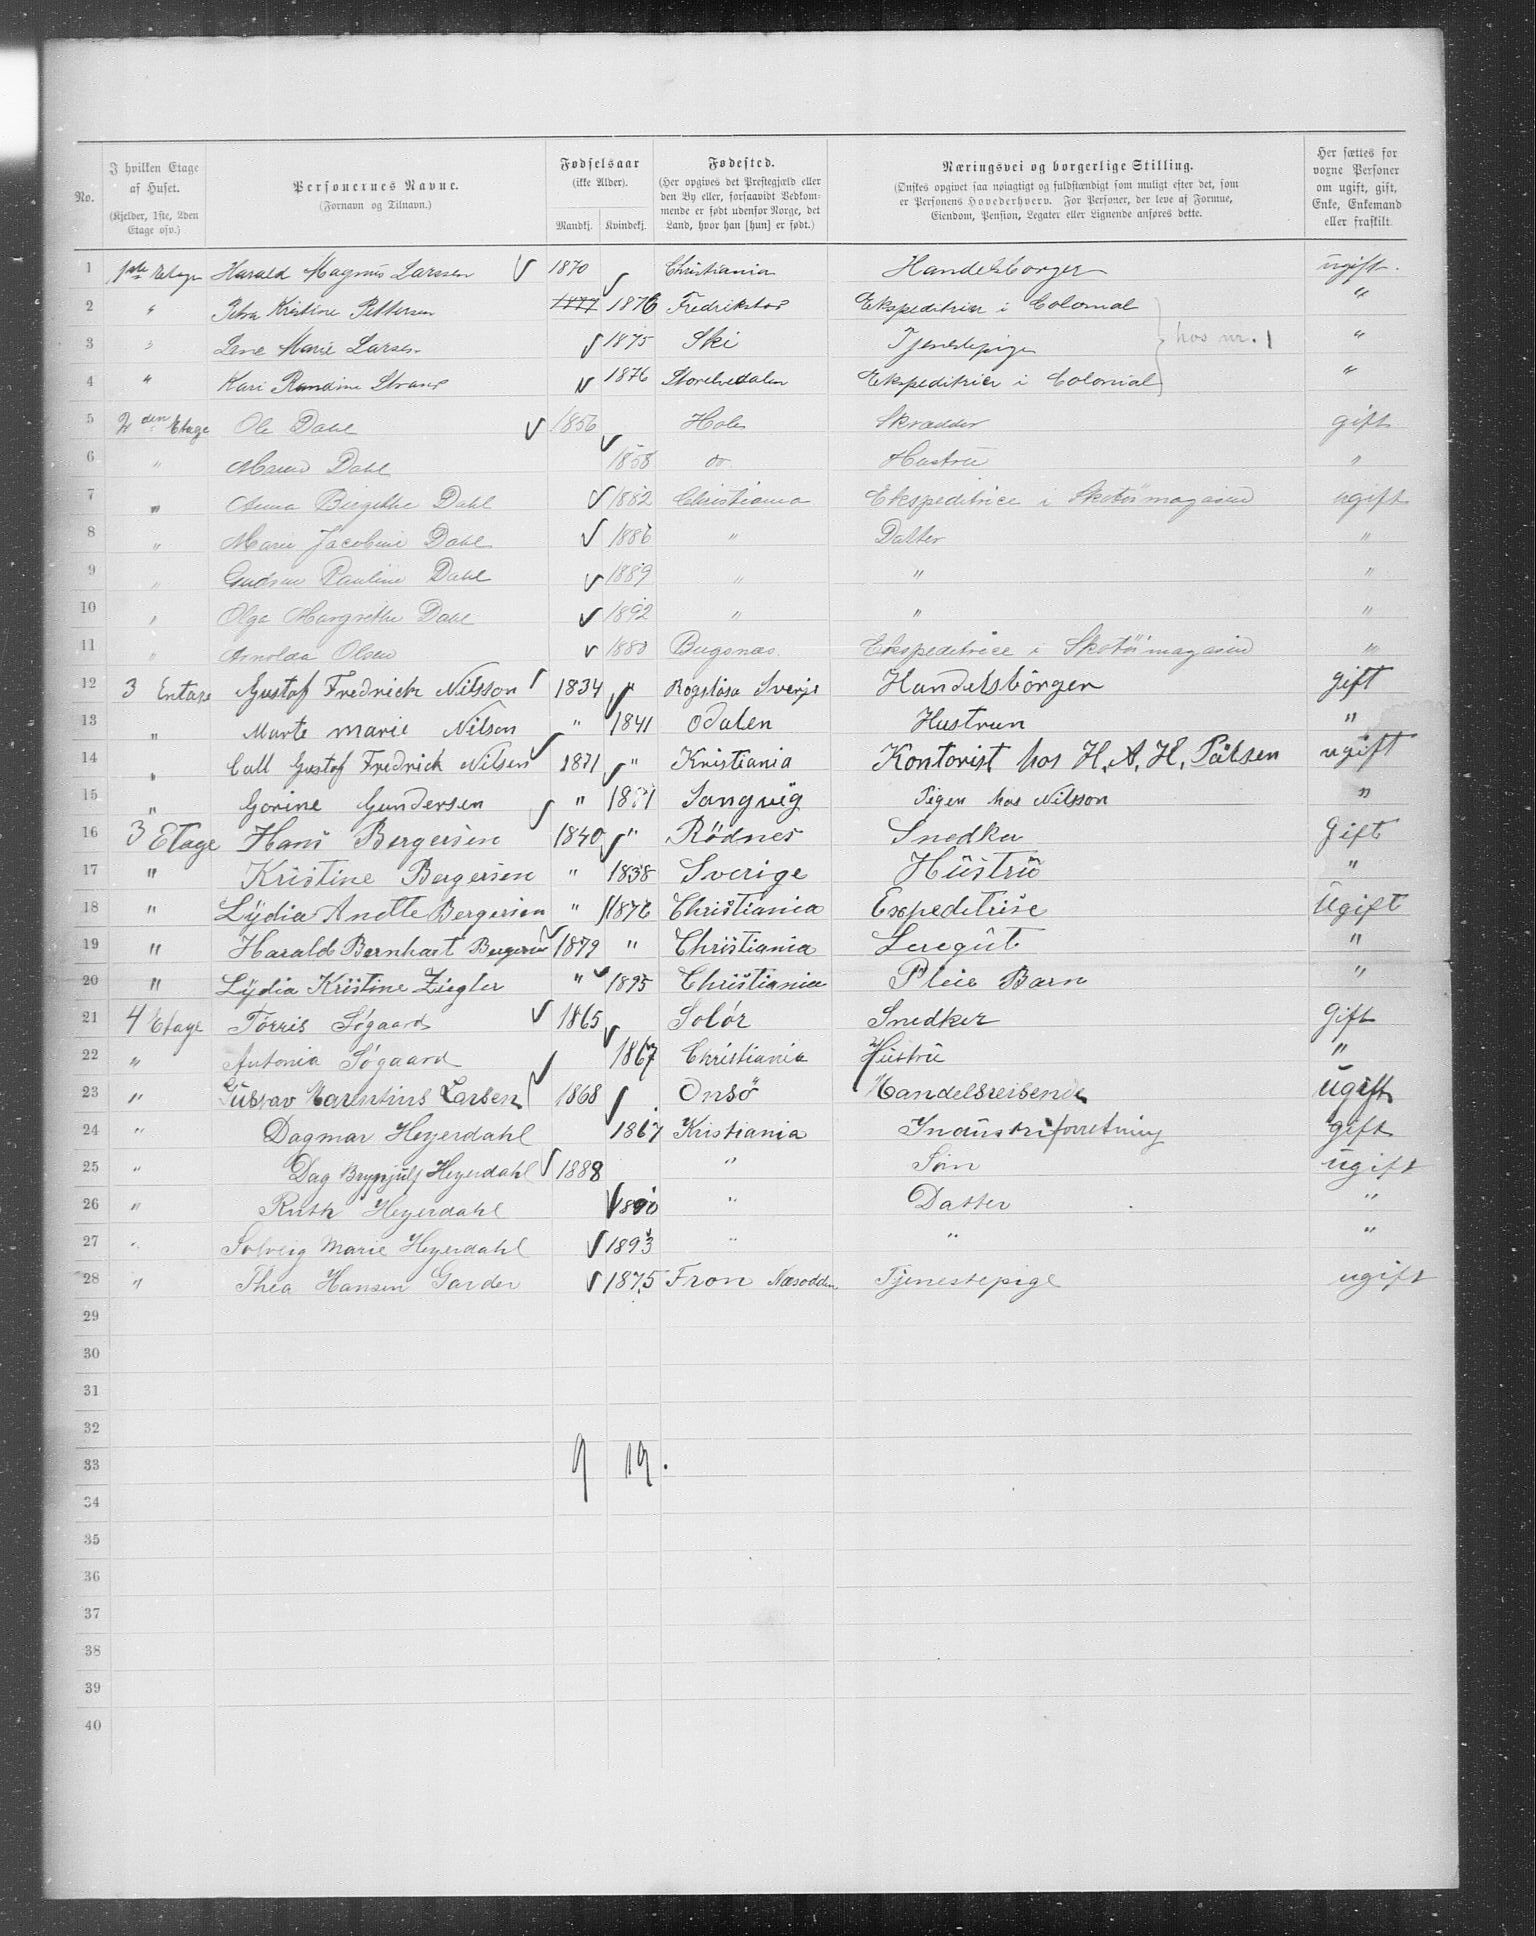 No.
I hvilken Etage af Huset.
(Kjelder, 1ste, 2den Etage osv.)
Personernes Navne.
(Fornavn og Tilnavn.)
Fødselsaar
(ikke Alder).
Mandkj. Kvindekj.
Fødested.
(Her opgives det Prestegjæld eller den By eller, forsaavidt Vedkommende er født udenfor Norge, det Land, hvor han [hun] er født.)
Næringsvei og borgerlige Stilling.
(Ønskes opgivet saa nøiagtigt og fuldstændigt som muligt efter det, som er Personens Hovederhverv. For Personer, der leve af Formue, Eiendom, Pension, Legater eller Lignende anføres dette.
Her sættes for voxne Personer om ugift, gift, Enke, Enkemand eller fraskilt.
1 1ste Etage Harald Magnus Larssen 1870 Christiania Handelsborger ugift.
2 " Petra Kristine Pettersen 1877 1876 Fredrikstad Ekspeditrice i Colonial "
3 " Lene Marie Larsen 1875 Ski Tjenestepige hos nr. 1 "
4 " Kari Randine Strand 1876 Storelvedalen Ekspeditrice i Colonial "
5 2den Etage Ole Dahl 1856 Hole Skrædder gift
6 " Dahl 1858 do Hustru "
7 " Anna Birgithe Dahl 1882 Christiania Ekspeditrice i Skotöimagasin ugift
8 " Marie Jacobine Dahl 1886 " Datter "
9 " Gudrun Pauline Dahl 1889 " " "
10 " Olga Margrethe Dahl 1892 " " "
11 " Arnolda Olsen 1880 Bugsnas. Ekspeditrice i Skotöimagasin "
12 3 Entase Gustof Fredrick Nilsson 1834 " Rogslösa Sverje Handelsbörger gift
13 " Marte marie Nilson " 1841 Odalen Hustrun "
14 " Call Gustof Fredrick Nilsen 1871 " Kristiania Kontorist hos H. A. H. Pålsen ugift
15 " Gorine Gundersen " 1871 Sangvig Pigen hos Nilsson "
16 3 Etage Hans Bergersen 1840 " Rödnes Snedker Gift
17 " Kristine Bergersen " 1838 Sverige Hüstrü "
18 " Lÿdia Anette Bergersen " 1876 Christiania Expeditrise Ugift
19 " Harald Bernhart Bergersen 1879 " Christiania Leregüt "
20 " Lÿdia Kristine Ziegler " 1895 Christiania Pleie Barn "
21 4 Etage Törris Sögaard 1865 Solör Snedker Gift
22 " Antonia Sögaard 1867 Christiania Hustru "
23 " Gustav Marentius Larsen 1868 Onsö Handelsreisende ugift
24 " Dagmar Heyerdahl 1867 Kristiania Industriforretning gift
25 " Dag Brynjulf Heyerdahl 1888 " Sön ugift
26 " Ruth Heyerdahl 1890 " Datter "
27 " Solveig Marie Heyerdahl 1893 " " "
28 " Thea Hansen Garder 1875 Fron Næsodden Tjenestepige ugift
29
30
31
32
33 9 19.
34
35
36
37
38
39
40